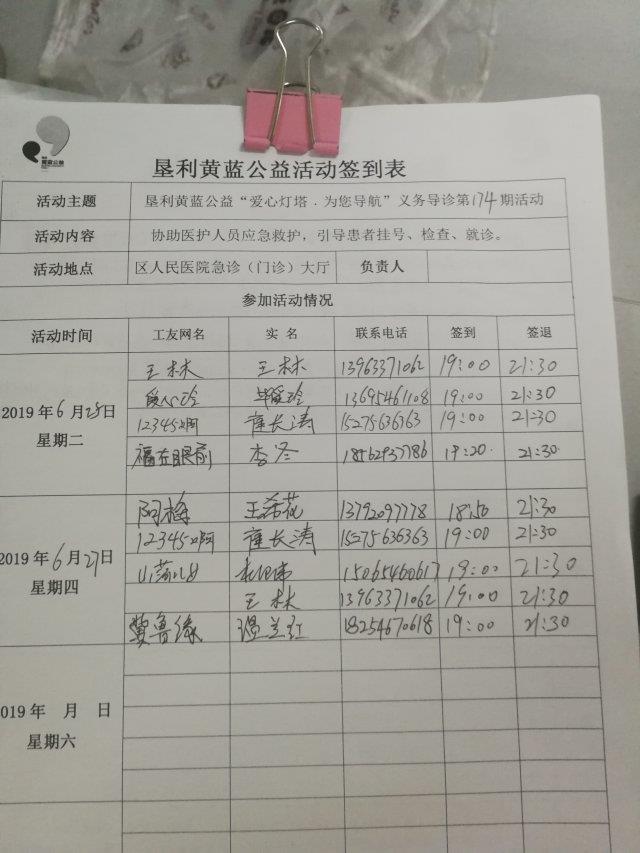 黄蓝公益
垦利黄蓝公益活动签到表
活动主题 垦利黄蓝公益“爱心灯塔.为您导航”义务导诊第174期活动
活动内容 协助医护人员应急救护，引导患者挂号、检查、就诊。
活动地点 区人民医院急诊（门诊）大厅 负责人
参加活动情况
活动时间 工友网名 实 名 联系电话 签到 签退
2019年6月25日
星期二
王林 王林 13963371062 19:00 21:30
爱心玲 毕爱玲 13695461108 19:00 21:30
12345上网 崔长涛 15275636363 19:00 21:30
福在眼前 李冬 18562937786 19:20. 21:30.
2019年6月27日
星期四
阿梅 王希花 13792097778 18:50 21:30
12345上网 崔长涛 15275636363 19:00 21:30
15065460617 19:00 21:30
王林 13963371062 19:00 21:30
冀鲁缘 温兰红 18254670618 19:00 21:30
019年 月 日
星期六